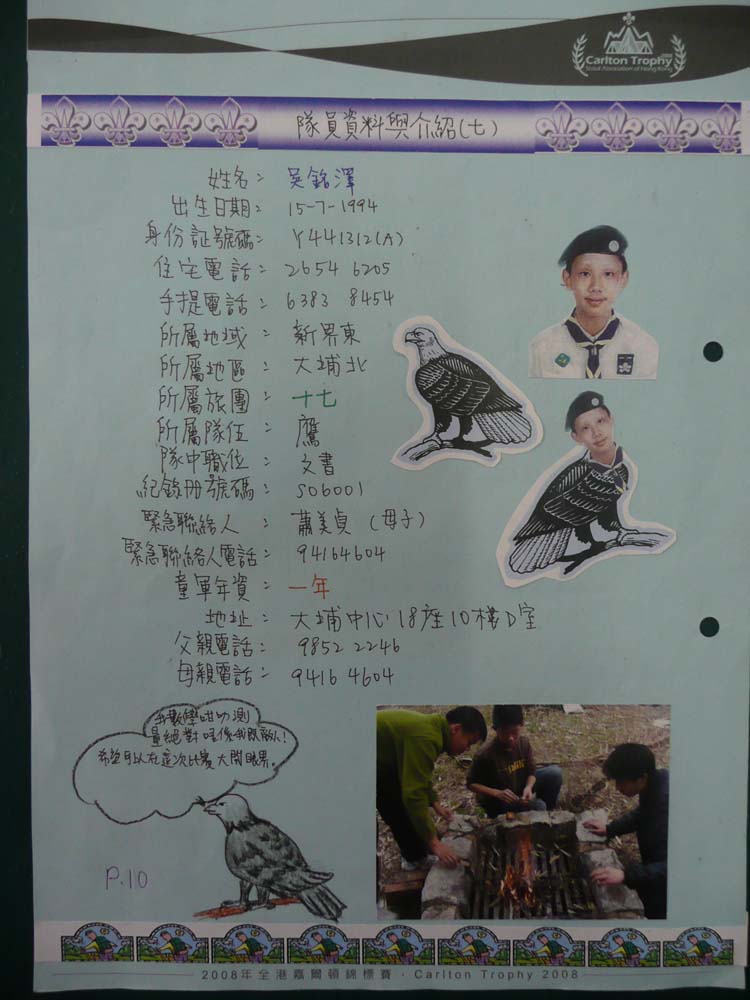 Carlton Trophy
Scout Association of Hong Kong
隊員資料與介紹(七)
姓名: 吳銘澤
出生日期: 15-7-1994
身份証號碼: Y441312(A)
住宅電話: 2654 6205
手提電話: 6383 8454
所屬地域: 新界東
所屬地區: 大埔北
所屬旅團: 十七
所屬隊伍: 鷹
隊中職位: 文書
紀錄冊號碼: S06001
緊急聯絡人: 蕭美貞 (母子)
緊急聯絡人電話: 94164604
童軍年資: 一年
地址: 大埔中心18座10樓D室
父親電話: 9852 2246
母親電話: 9416 4604
我數學咁叻測
量絕對唔係我既敵人!
希望可以在這次比賽大開眼界。
P.10
2008年全港嘉爾頓錦標賽·Carlton Trophy 2008